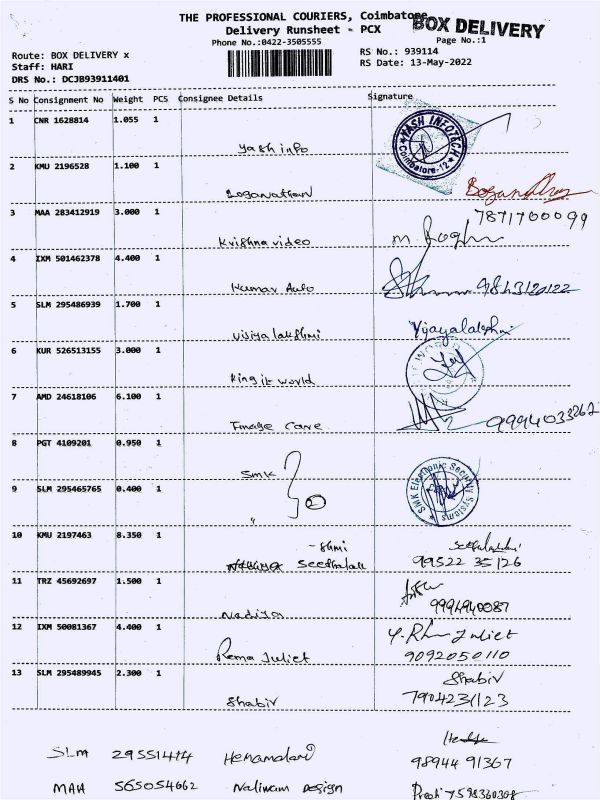 THE PROFESSIONAL COURIERS, Coimbatore
BOX DELIVERY
Delivery Runsheet - PCX
Phone No.:0422-3505555
Page No.:1
Route: BOX DELIVERY x
RS No.: 939114
Staff: HARI
RS Date: 13-May-2022
DRS No.: DCJB93911401
S No Consignment No Weight PCS Consignee Details Signature
1 CNR 1628814 1.055 1
Yash info
YASH INFOTECH
Coimbatore-12
2 KMU 2196528 1.100 1
Loganathan
3 MAA 283412919 3.000 1
7871700099
Krishna video
4 IXM 501462378 4.400 1
Kumar Auto
9843120122
5 SLM 295486939 1.700 1
Vijayalakshmi
Vijayalakshmi
6 KUR 526513155 3.000 1
WORLD
King it world
7 AMD 24618106 6.100 1
Image Care
9994033262
8 PGT 4109201 0.950 1
SMK
SMK Electronic Security Systems
9 SLM 295465765 0.400 1
2
"
10 KMU 2197463 8.350 1
-shmi
Seethalak
99522 35126
11 TRZ 45692697 1.500 1
9994940087
Nadiya
12 IXM 50081367 4.400 1
Y. Juliet
Rema Juliet
9092050110
13 SLM 295489945 2.300 1
Shabir
Shabir
7904231123
SLM 29551414 Hemamalani
98944 91367
MAA 565054662 Naliwam Design
Preeti 7598360308